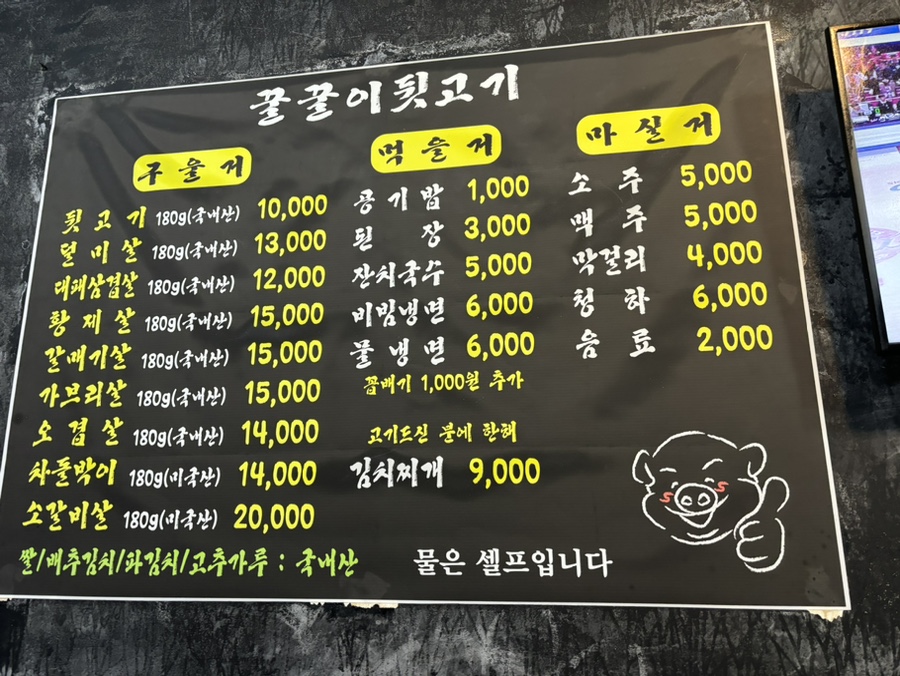 꿀꿀이뒷고기
구울거
뒷고기 180g(국내산) 10,000
덜미살 180g(국내산) 13,000
대패삼겹살 180g(국내산) 12,000
황제살 180g(국내산) 15,000
갈매기살 180g(국내산) 15,000
가브리살 180g(국내산) 15,000
오겹살 180g(국내산) 14,000
차돌박이 180g(미국산) 14,000
소갈비살 180g(미국산) 20,000
먹을거
공기밥 1,000
된장 3,000
잔치국수 5,000
비빔냉면 6,000
물냉면 6,000
꼽배기 1,000원 추가
고기드신 분에 한해
김치찌개 9,000
마실거
소주 5,000
맥주 5,000
막걸리 4,000
청하 6,000
음료 2,000
쌀/배추김치/파김치/고추가루 : 국내산
물은 셀프입니다